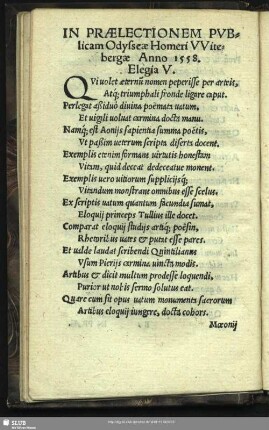 IN PRÆLECTIONEM PVB-
licam Odysseæ Homeri VVite-
bergæ Anno 1558.
Elegia V.
QVi uolet æternũ nomen peperisse per arteis,
Atq; triumphali fronde ligare caput.
Perlegat aßiduò diuina poëmata uatum,
Et uigili uoluat carmina docta manu.
Namq; est Aonijs sapientia summa poëtis,
Vt paßim ueterum scripta diserta docent.
Exemplis etenim formans uirtutis honestam
Vitam, quid deceat dedeceatue monent.
Exemplis uero uitiorum supplicijsq;
Vitandum monstrant omnibus esse scelus.
Ex scriptis uatum quantum facundia sumat,
Eloquij princeps Tullius ille docet.
Comparat eloquij studijs artiq; poësin,
Rhetoribus uates & putat esse pares.
Et ualde laudat scribendi Quintilianus
Vsum Pierijs carmina uincta modis.
Artibus & dicit multum prodesse loquendi,
Purior ut nobis sermo solutus eat.
Quare cum sit opus uatum monumenta sacrorum
Artibus eloquij iungere, docta cohors.
Mæonij
SLUB